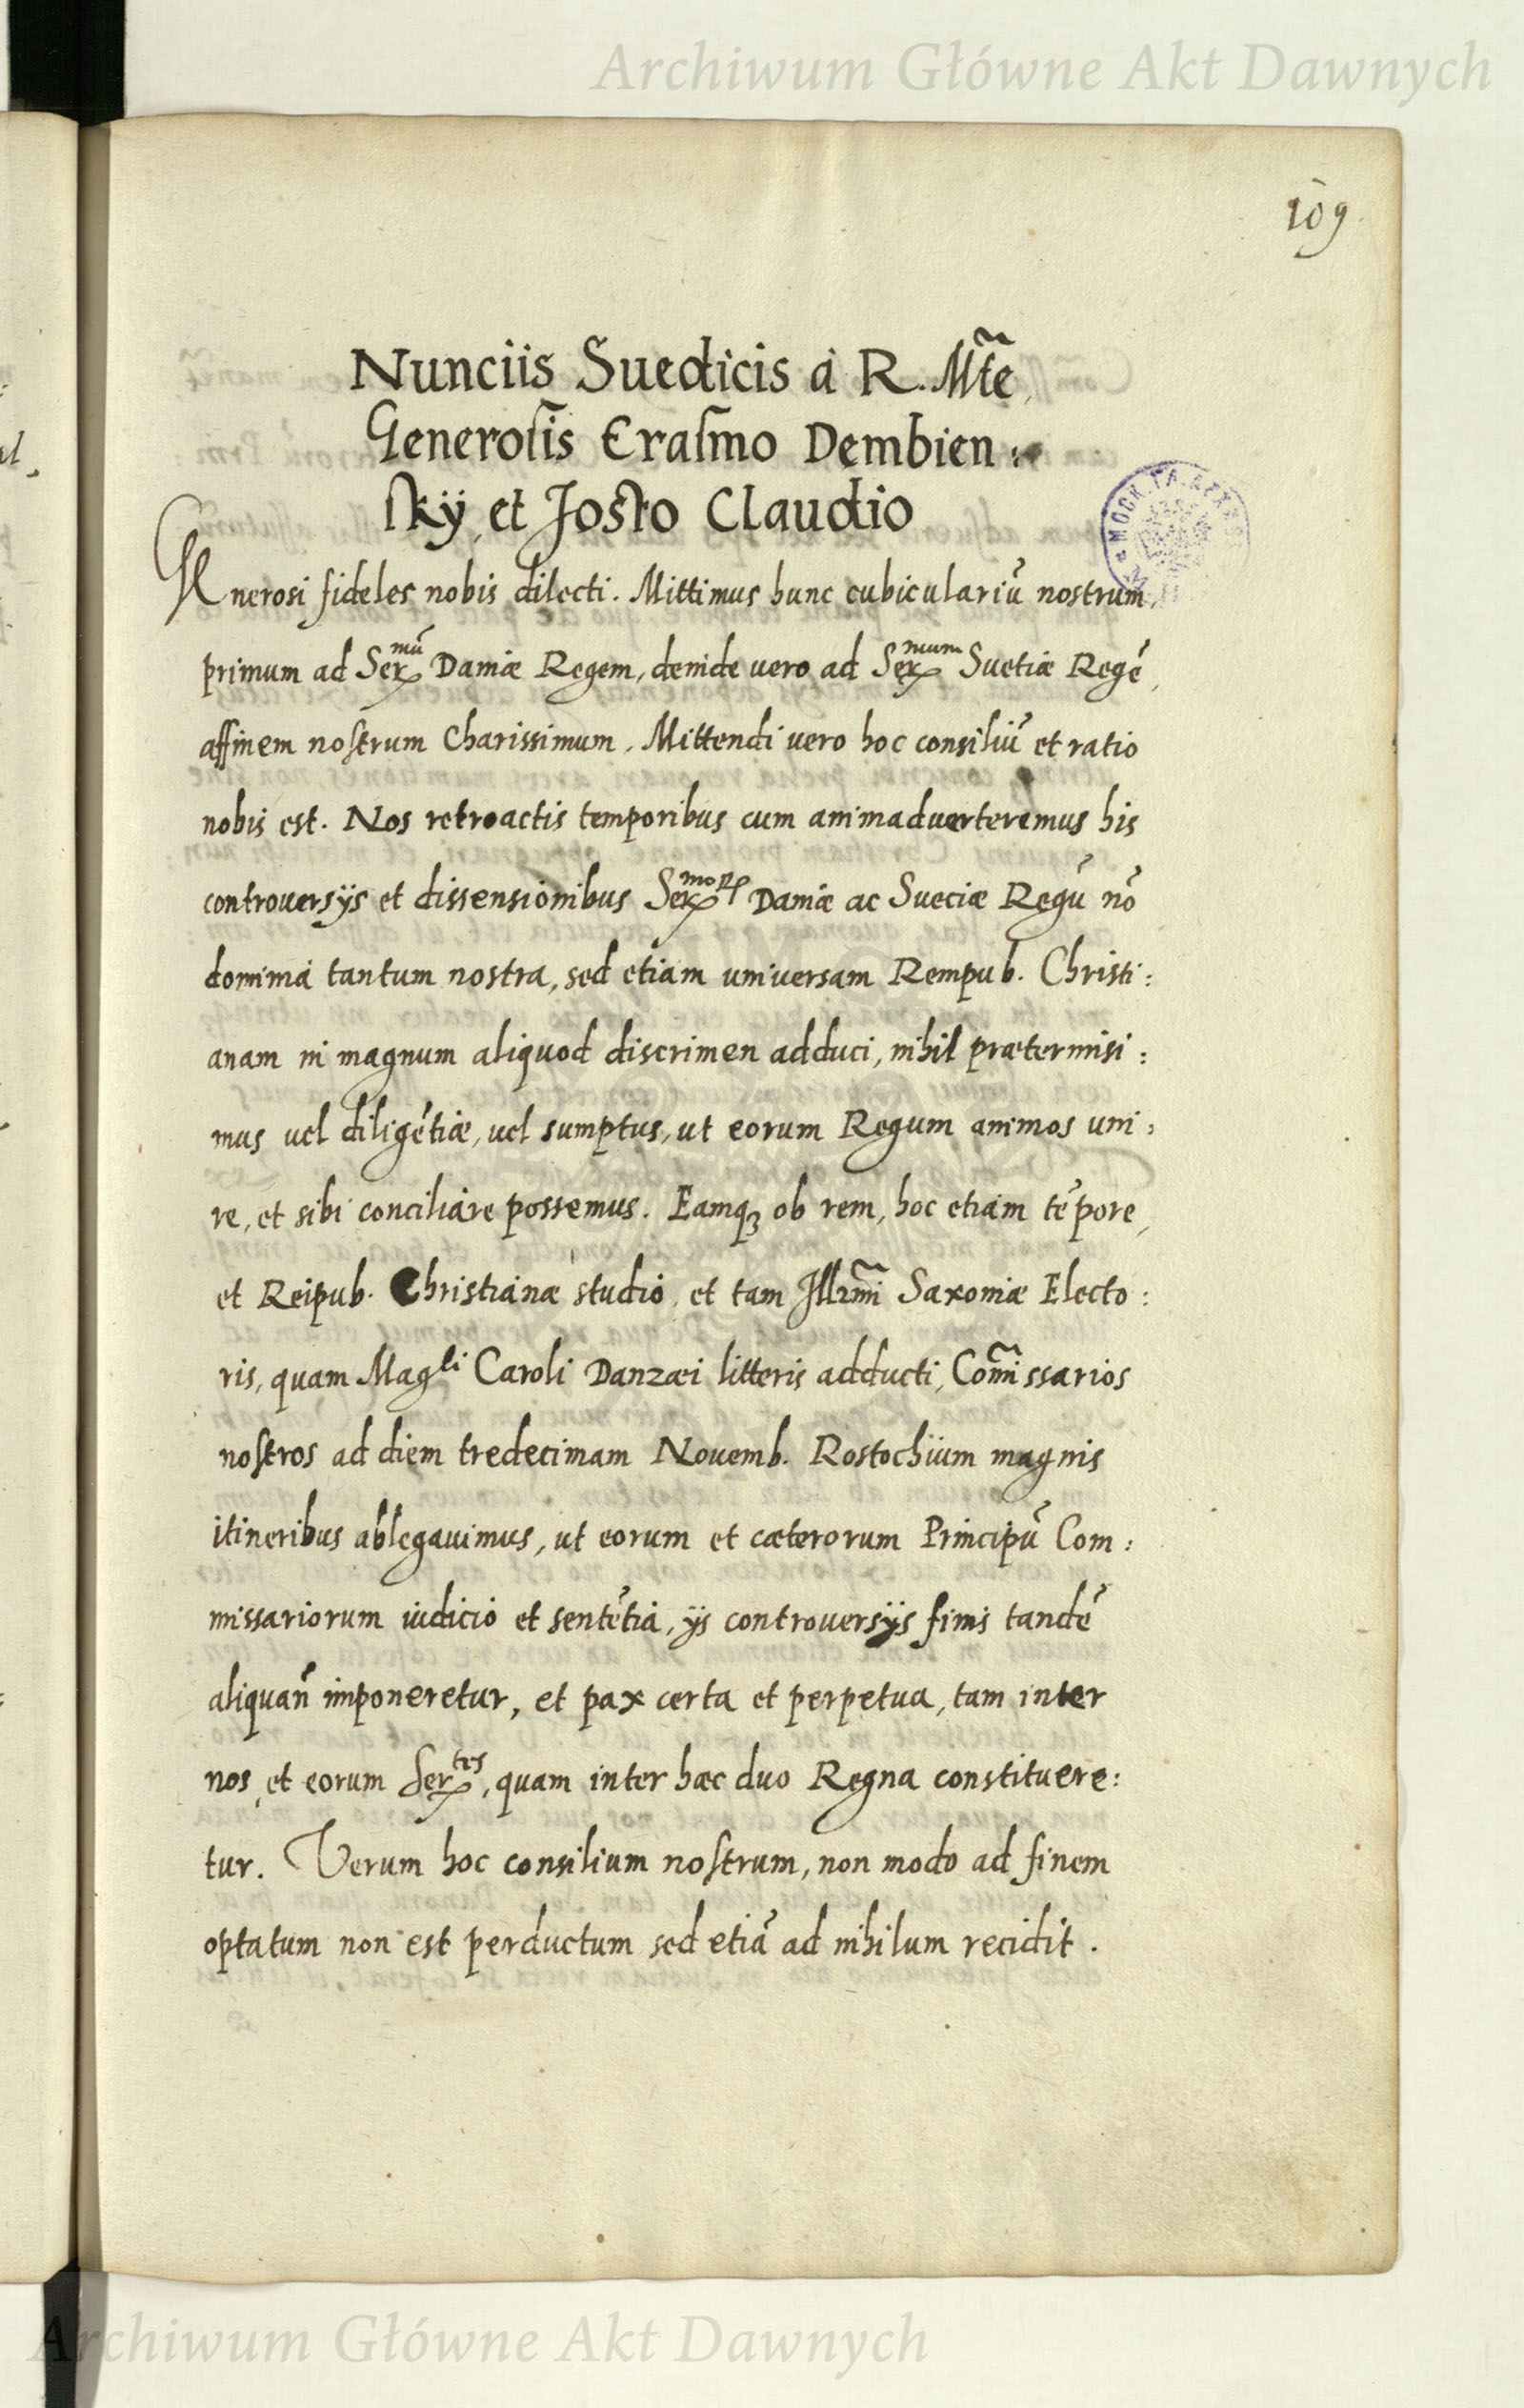 Archiwum Główne Akt Dawnych
109
Nunciis Suedicis à R. Mt̃e
Generosis Erasmo Dembien:
skÿ, et Josto Claudio
Generosi fideles nobis dilecti. Mittimus hunc cubiculariũ nostrum,
primum ad Serᵐᵘ̃ Daniæ Regem, deinde vero ad Serᵐᵘᵐ Suetiæ Regẽ,
affinem nostrum Charissimum. Mittendi vero hoc consiliũ et ratio
nobis est. Nos retroactis temporibus cum animaduerteremus his
controuersijs et dissensionibus Serᵐᵒꝝ Daniæ ac Sueciæ Regũ nõ
dominia tantum nostra, sed etiam universam Rempub. Christi:
anam in magnum aliquod discrimen adduci, nihil prætermisi:
mus vel diligẽtiæ, vel sumptus, ut eorum Regum animos uni:
re, et sibi conciliare possemus. Eamqꝫ ob rem, hoc etiam tẽpore,
et Reipub. Christianæ studio, et tam Illr̃mi Saxoniæ Electo:
ris, quam Magˡⁱ Caroli Danzæi litteris adducti, Com̃issarios
nostros ad diem tredecimam Nouemb. Rostochium magnis
itineribus ablegauimus, ut eorum et cæterorum Principũ Com:
missariorum iudicio et sentẽtia, ijs controversijs finis tandẽ
aliquañ imponeretur, et pax certa et perpetua, tam inter
nos, et eorum Serᵗᵉˢ, quam inter hæc duo Regna constituere:
tur. Verum hoc consilium nostrum, non modo ad finem
optatum non est perductum sed etiã ad nihilum recidit.
Archiwum Główne Akt Dawnych